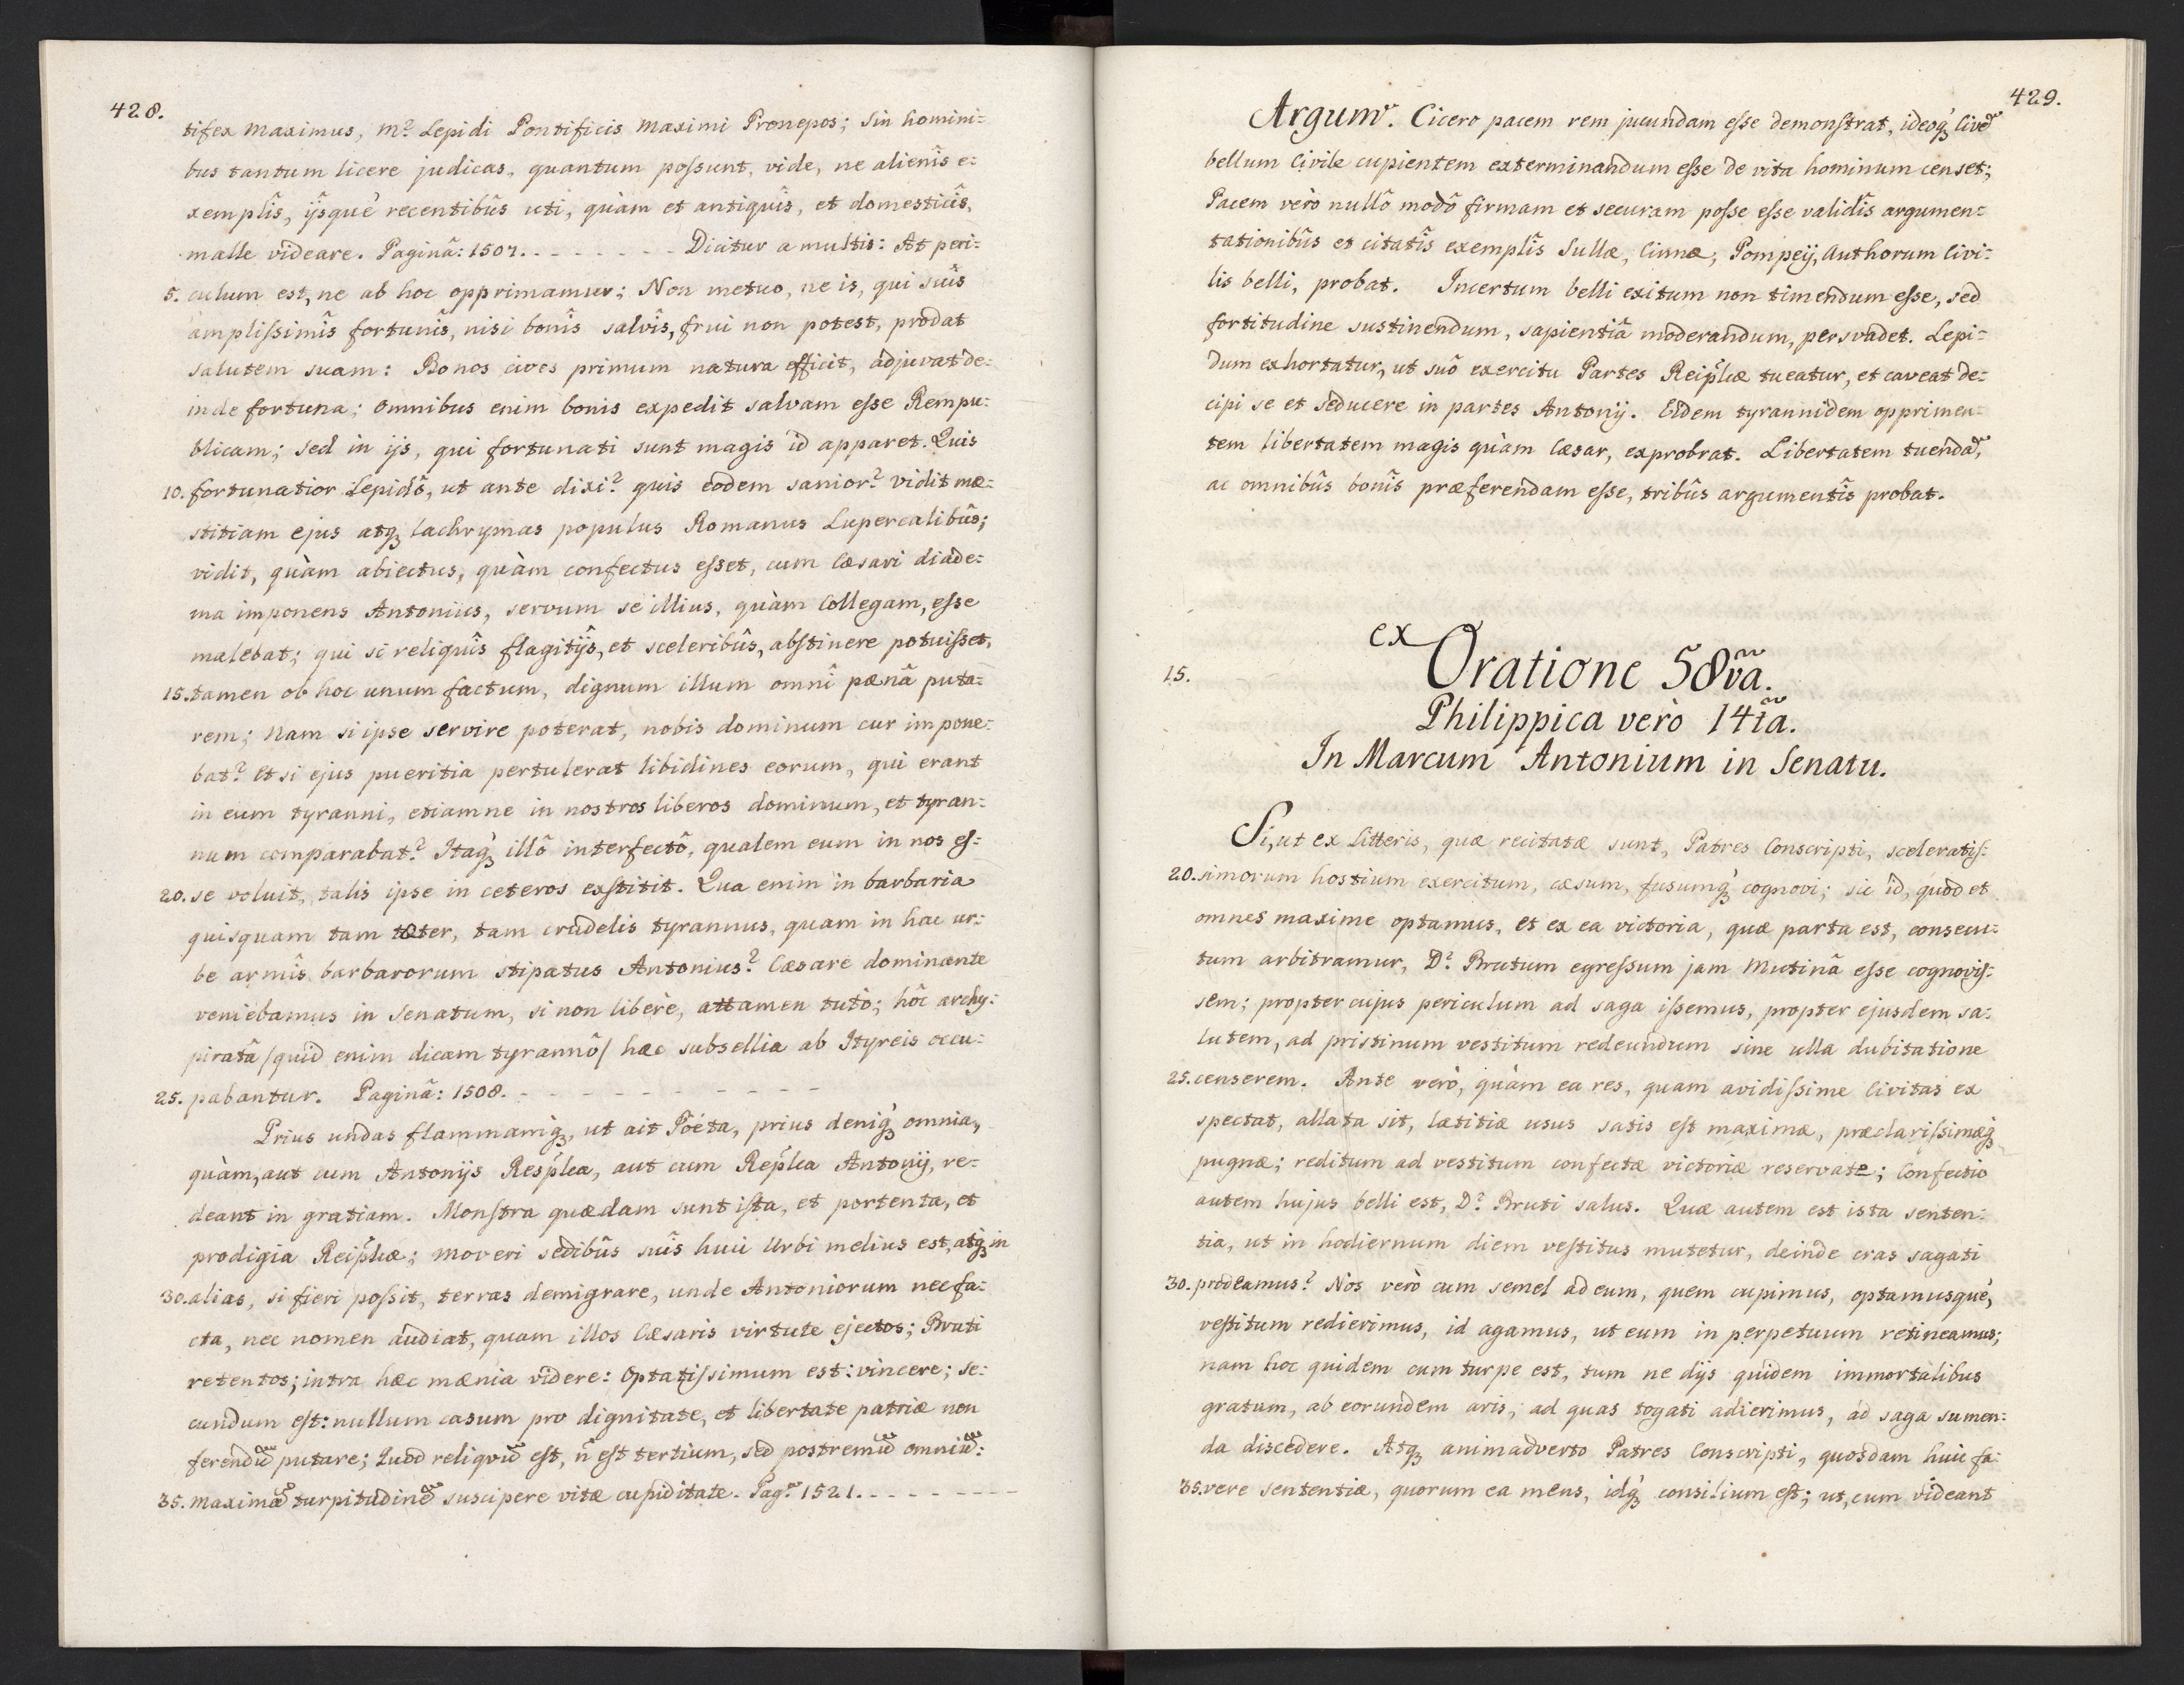 428.
tifex Maximus, M? Lepidi Pontificis Maximi Pronepos; Sin homini=
bus tantum licere judicas, quantum poſsunt, vide, ne alienîs e=
xemplîs, ijsquè recentibûs uti, quàm et antiquîs, et domesticîs,
malle videare. Paginâ: 1507. - - - - - - - Dicitur a multis: At peri=
5. culum est, ne ab hoc opprimamur; Non metuo, ne is, qui suîs
ampliſsimîs fortunîs, nisi bonîs salvîs, frui non potest, prodat
salutem suam: Bonos cives primum natura efficit, adjuvat de=
inde fortuna; omnibus enim bonis expedit salvam eſse Rempu=
blicam; sed in ijs, qui fortunati sunt magis id apparet. Quis
10. fortunatior Lepidô, ut ante dixi? quis eodem sanior? vidit mæ=
stitiam ejus atq̀ȝ lachrymas populus Romanus Lupercalibûs;
vidit, quàm abiectus, quàm confectus eſset, cum Cæsari diade=
ma imponens Antonius, servum se illius, quàm Collegam, eſse
malebat; qui si reliquîs flagitijs, et sceleribûs, abſtinere potuiſset,
15. tamen ob hoc unum factum, dignum illum omnî pœnâ puta=
rem; Nam si ipse servire poterat, nobis dominum cur impone=
bat? Et si ejus pueritia pertulerat libidines eorum, qui erant
in eum tyranni, etiamne in nostros liberos dominum, et tyran=
num comparabat? Itaq̀ȝ illô interfectô, qualem eum in nos eſ=
20. se voluit, talis ipse in ceteros exſtitit. Qua enim in barbaria
quisquam tam tæter, tam crudelis tyrannus, quam in hac ur=
be armîs barbarorum stipatus Antonius? Cæsare dominante
veniebamus in Senatum, si non liberè, attamen tutò; hôc archy=
piratâ /quid enim dicam tyrannô/ hæc subsellia ab Ityreis occu=
25. pabantur. Paginâ: 1508. - - - - - - - - - -
Prius undas flammamq̀ȝ, ut ait Poéta, prius deniq̀ȝ omnia,
quàm, aut cum Antonijs Resplca, aut cum Replca Antonij, re=
deant in gratiam. Monſtra quædam sunt iſta, et portenta, et
prodigia Reiplcæ; moveri sedibûs suîs huic Urbi melius est, atq̀ȝ in
30. alias, si fieri poſsit, terras demigrare, unde Antoniorum nec fa=
cta, nec nomen audiat, quam illos Cæsaris virtute ejectos; Bruti
retentos; intra hæc mænia videre: Optatiſsimum est: vincere; se=
cundum eſt: nullum casum pro dignitate, et libertate patriæ non
ferendū putare; Quod reliqvū eſt, n̂ eſt tertium, sed postremū omniū:
35. maximā turpitudinē suscipere vitæ cupiditate. Pag.ᵃ 1521. - - - - - - - - -
429.
Argumᵗ. Cicero pacem rem jucundam eſse demonſtrat, ideoq̀ȝ Civē
bellum Civile cupientem exterminandum eſse de vita hominum censet;
Pacem verò nullô modô firmam et securam poſse eſse validîs argumen=
tationibûs et citatîs exemplîs Sullæ, Cinnæ, Pompeij, Authorum Civi=
lis belli, probat. Incertum belli exitum non timendum eſse, sed
fortitudine sustinendum, sapientiâ moderandum, persvadet. Lepi=
dum exhortatur, ut suô exercitu Partes Reiplcæ tueatur, et caveat de=
cipi se et seducere in partes Antonij. Eidem tyrannidem opprimen=
tem libertatem magis quàm Cæsar, exprobrat. Libertatem tuendā,
ac omnibûs bonîs præferendam eſse, tribûs argumentîs probat.
ex
15. Oratione 58vâ.
Philippica verò 14tâ.
In Marcum Antonium in Senatu.
Si, ut ex Litteris, quæ recitatæ sunt, Patres Conscripti, sceleratiſ=
20. simorum hostium exercitum, cæsum, fusumq̀ȝ cognovi; sic id, quod et
omnes maxime optamus, et ex ea victoria, quæ parta est, consecu=
tum arbitramur, D? Brutum egreſsum jam Mutinâ eſse cognoviſ=
sem; propter cujus periculum ad saga iſsemus, propter ejusdem sa=
lutem, ad pristinum vestitum redeundum sine ulla dubitatione
25. censerem. Ante verò, quàm ea res, quam avidiſsime Civitas ex
spectat, allata sit, lætitiæ usus satis eſt maximæ, præclariſsimæq̀ȝ
pugnæ; reditum ad vestitum confectæ victoriæ reservate; Confectio
autem hujus belli est, D? Bruti salus. Quæ autem est ista senten=
tia, ut in hodiernum diem veſtitus mutetur, deinde cras sagati
30. prodeamus? Nos verò cum semel ad eum, quem cupimus, optamusquè,
veſtitum redierimus, id agamus, ut eum in perpetuum retineamus;
nam hoc quidem cum turpe est, tum ne dijs quidem immortalibus
gratum, ab eorundem aris, ad quas togati adierimus, ad saga sumen=
da discedere. Atq̀ȝ animadverto Patres Conscripti, quosdam huic fa=
35. vere sententiæ, quorum ea mens, idq̀ȝ consilium eſt; ut, cum videant